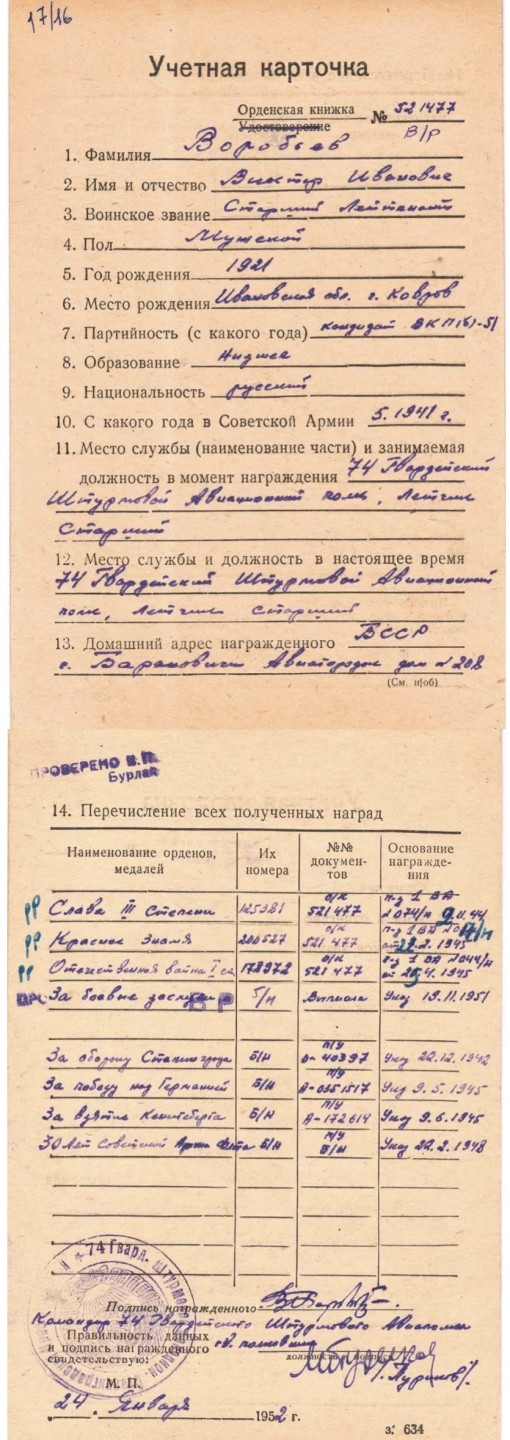 17/16
Учетная карточка
Орденская книжка
Удостоверение № 521477
В/р
1. Фамилия Воробьев
2. Имя и отчество Виктор Иванович
3. Воинское звание Старший Лейтенант
4. Пол Мужской
5. Год рождения 1921
6. Место рождения Ивановская обл. г. Ковров
7. Партийность (с какого года) кандидат ВКП(б)-51
8. Образование Низшее
9. Национальность русский
10. С какого года в Советской Армии 5.1941 г.
11. Место службы (наименование части) и занимаемая
должность в момент награждения 74 Гвардейский
Штурмовой Авиационный полк, Летчик
Старший
12. Место службы и должность в настоящее время
74 Гвардейский Штурмовой Авиационный
полк, Летчик Старший
13. Домашний адрес награжденного БССР
г. Барановичи Авиагородок дом № 208
(См. н/об)
ПРОВЕРЕНО В.П.
Бурлай
14. Перечисление всех полученных наград
Наименование орденов, медалей Их номера №№ документов Основание награждения
Слава III Степени 125381 о/к 521477 п-з 1 ВА № 074/н 9.11.44
Красное Знамя о/к 521477 п-з 1 ВА 2.1945
Отечественная война I ст 178972 о/к 521477 п-з 1 ВА № 044/н от 25.4.1945
За боевые заслуги ВР б/н Выписка Указ 19.11.1951
За оборону Сталинграда Б/н п/у 40397 Указ 22.12.1942
За победу над Германией Б/н п/у А-0351517 Указ 9.5.1945
За взятие Кенигсберга Б/н п/у А-172614 Указ 9.6.1945
30 лет Советской Армии Флота Б/н п/у Б/н Указ 22.2.1948
74 Гвард. Штурм
Подпись награжденного
Командир 74 Гвардейского Штурмового Авиаполка
Правильность данных гв. полковник
и подпись награжденного
свидетельствую:
М. П.
24 Января 1952 г.
з. 634